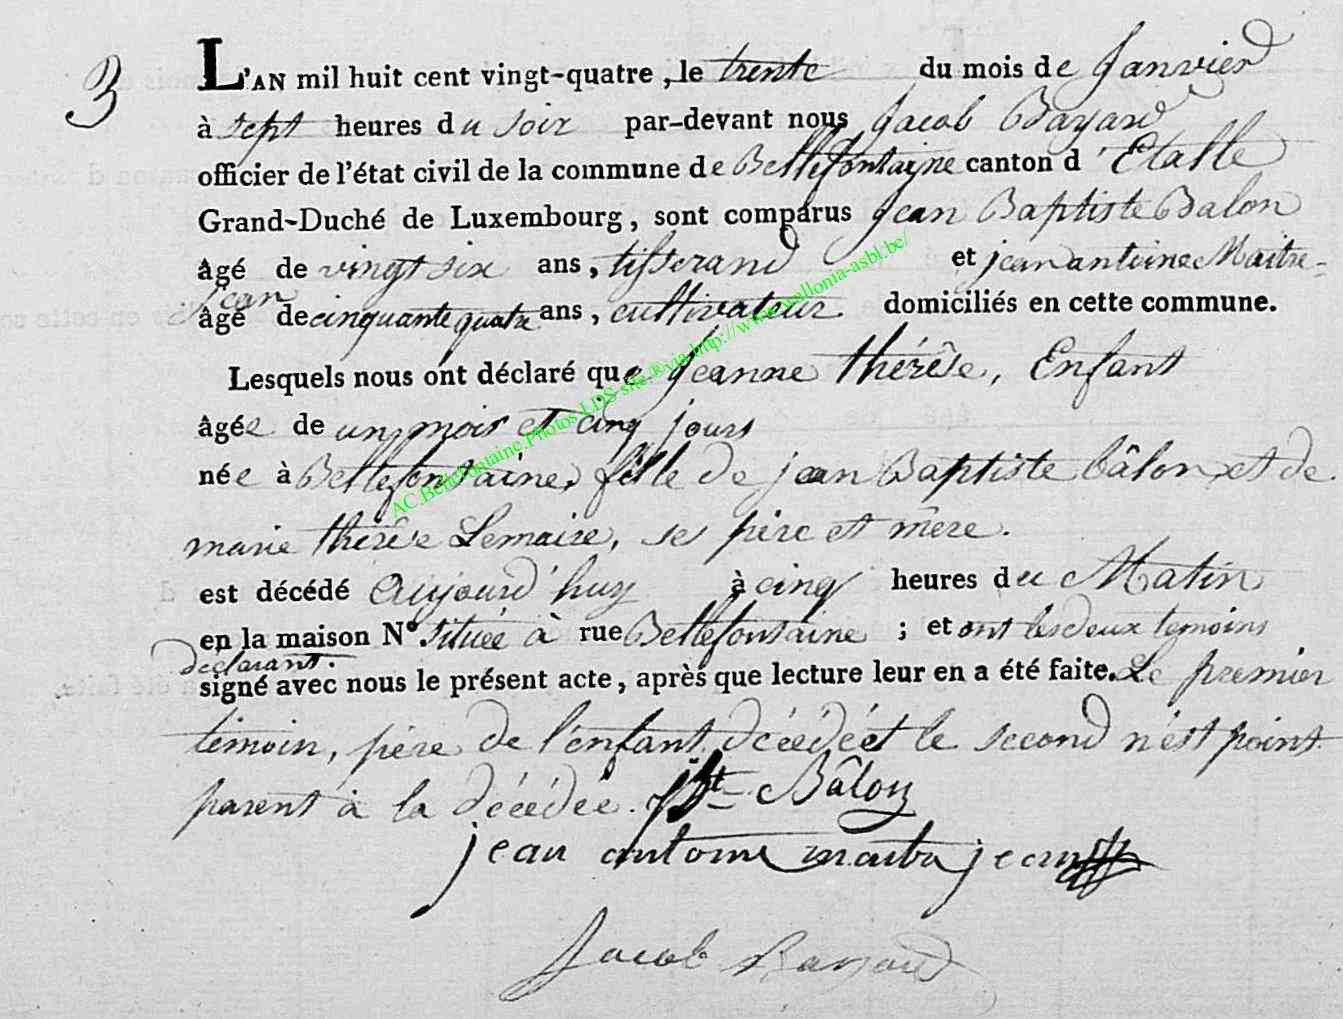 3
L'AN mil huit cent vingt-quatre, le trente du mois de Janvier
à sept heures du soir par-devant nous Jacob Bayard
officier de l'état civil de la commune de Bellefontaine canton d'Etalle
Grand-Duché de Luxembourg, sont comparus Jean Baptiste Balon
âgé de vingt six ans, tisserand et jean antoine Maitre-
jean
âgé de cinquante quatre ans, cultivateur domiciliés en cette commune.
Lesquels nous ont déclaré que Jeanne thérêse, Enfant
âgée de un mois et cinq jours
née à Bellefontaine, fille de jean Baptiste bâlon, et de
marie thérêse Lemaire, ses pére et mêre.
est décédé aujourd'huy à cinq heures du Matin
en la maison N° située à rue Bellefontaine ; et ont les deux temoins
declarant.
signé avec nous le présent acte, après que lecture leur en a été faite. Le premier
témoin, pére de l'enfant décédé et le second n'est point
parent à la décédée. JBt Bâlon
jean antoine maitrejean
Jacob Bayard
AC.Bellefontaine.Photos.LDS-site.®via.http://www.wallonia-asbl.be/